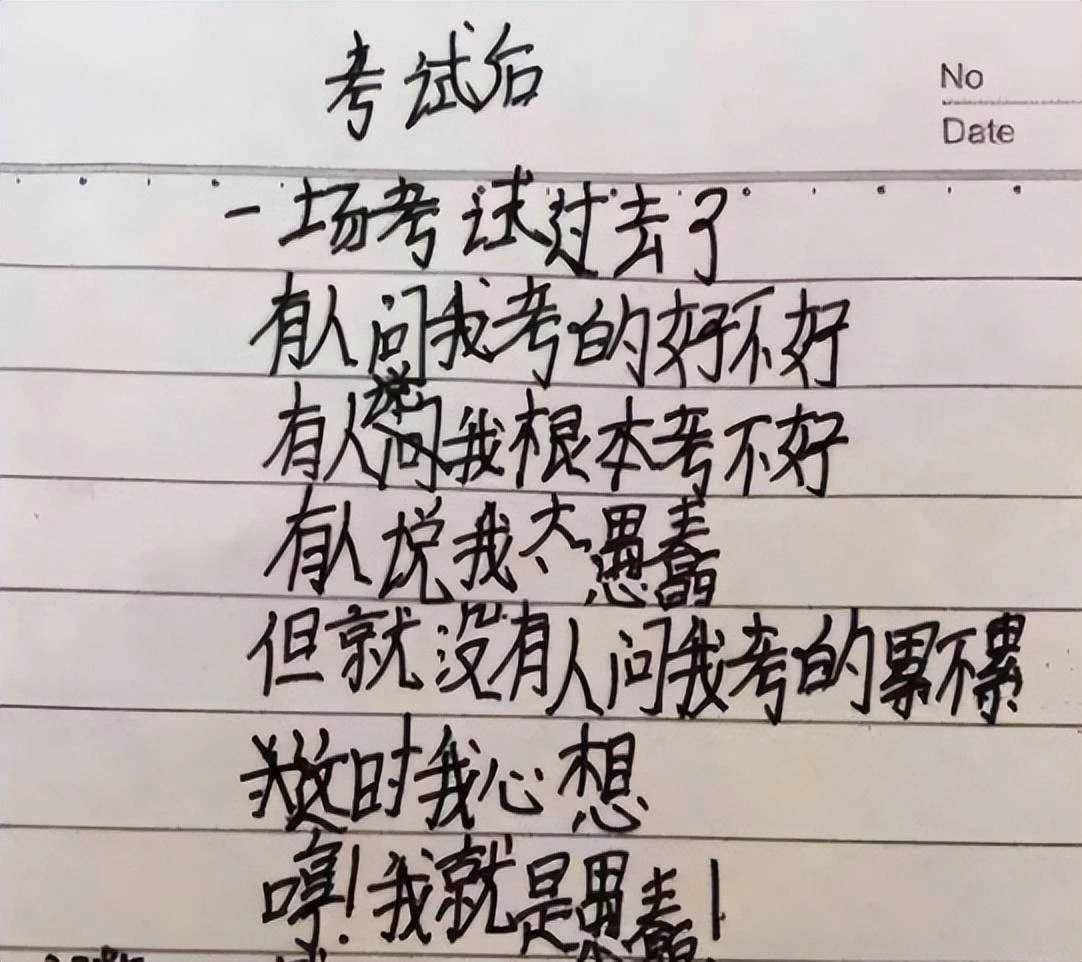 考试后
No
Date
一场考试过去了
有人问我考的好不好
有人说我根本考不好
有人说我太愚蠢
但就没有人问我考的累不累
时我心想
哼!我就是愚蠢!